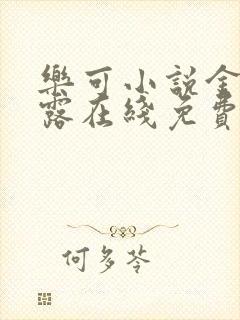 樂可小說金
露在綫免費
何多苓